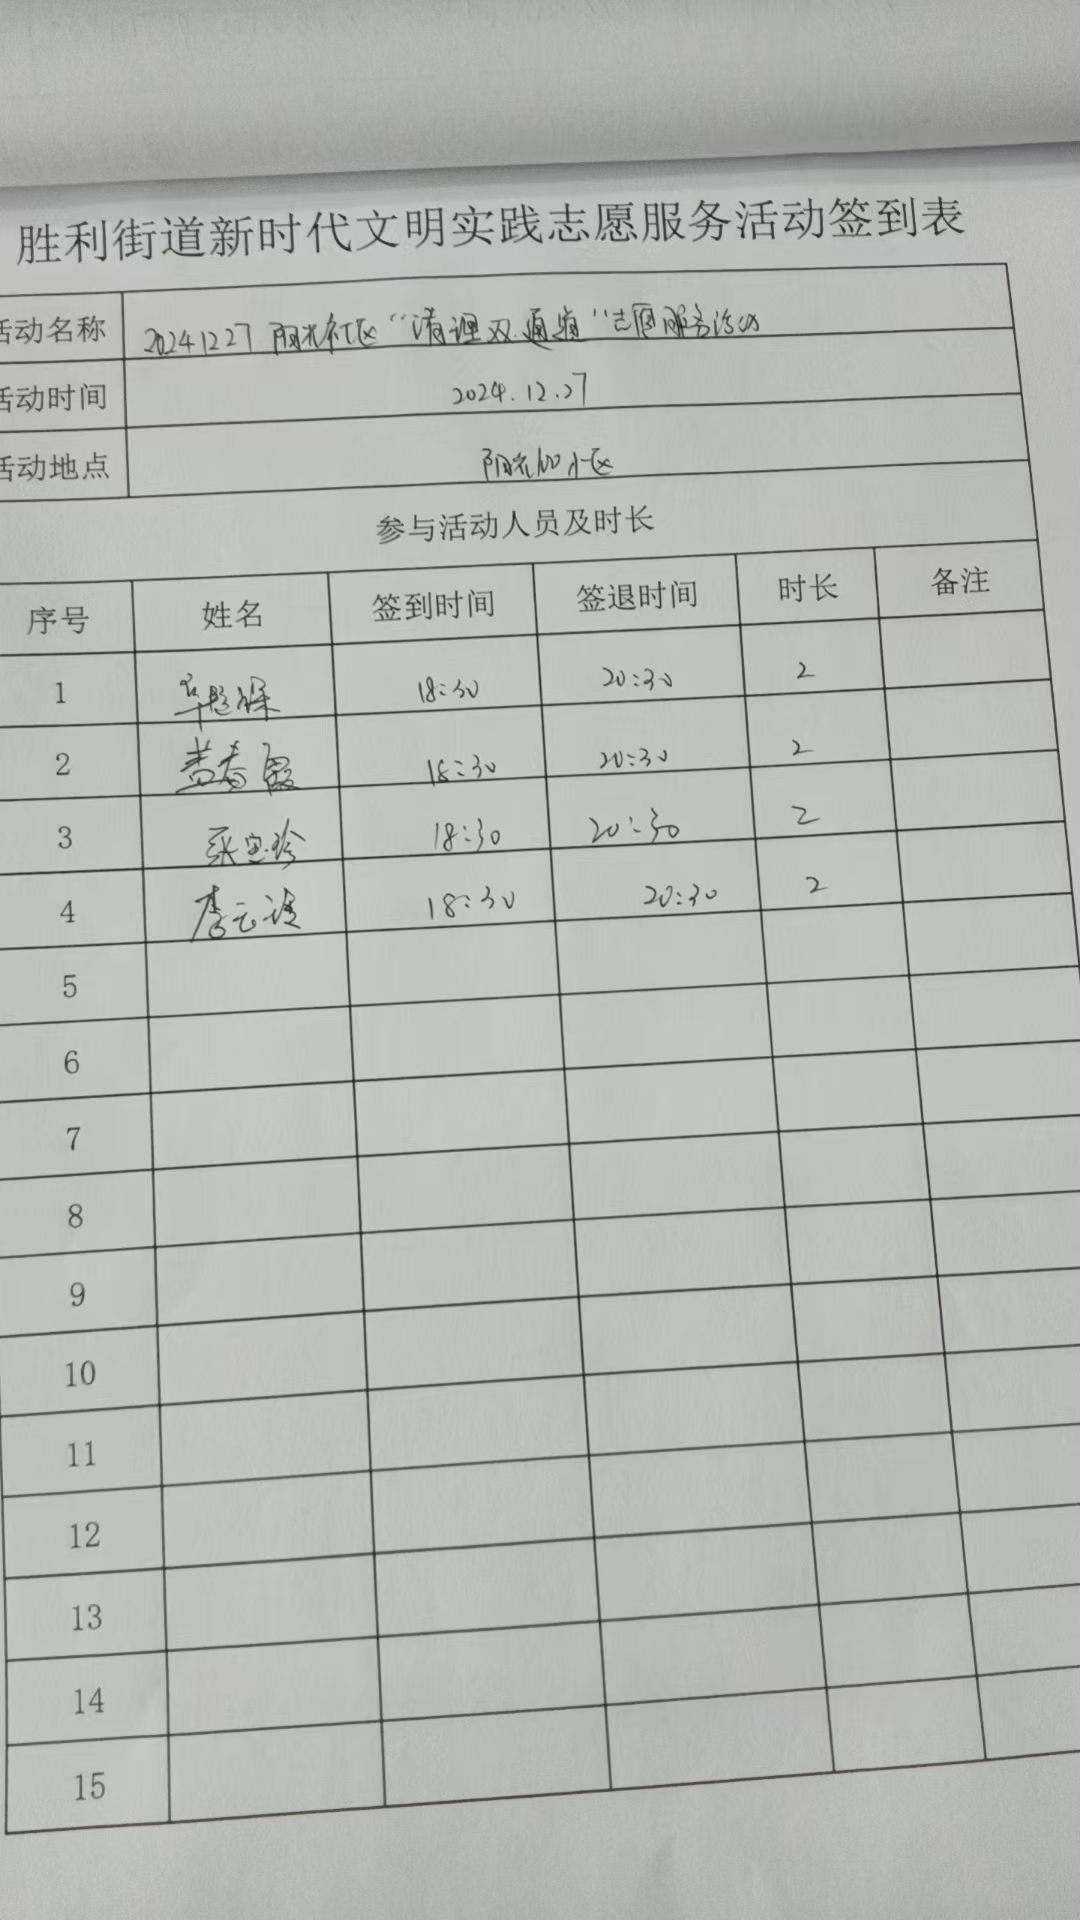 胜利街道新时代文明实践志愿服务活动签到表
活动名称 20241227 阳光社区“清理双通道”志愿服务活动
活动时间 2024.12.27
活动地点 阳光 小区
参与活动人员及时长
序号 姓名 签到时间 签退时间 时长 备注
1 18:30 20:30 2
2 黄春霞 18:30 20:30 2
3 张宝珍 18:30 20:30 2
4 李云 18:30 20:30 2
5
6
7
8
9
10
11
12
13
14
15